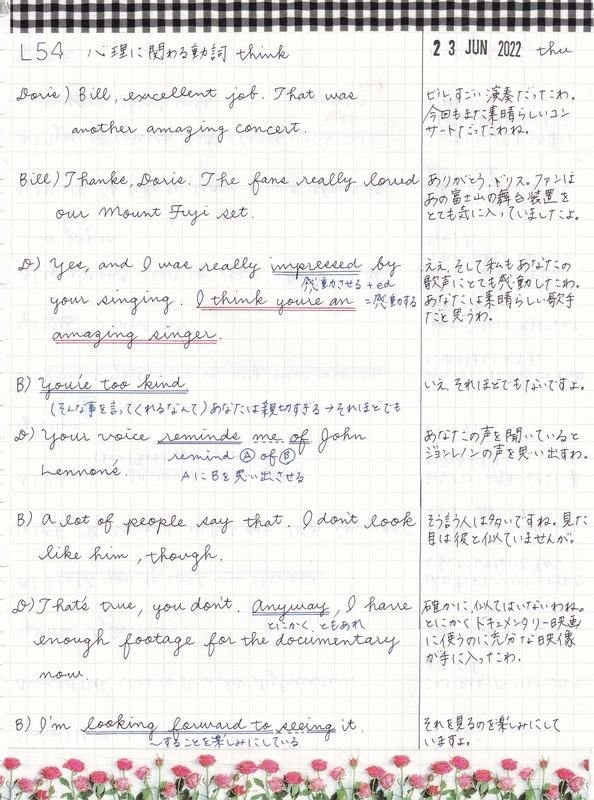 L54 心理に関わる動詞 think
23 JUN 2022 thu
Doris) Bill, excellent job. That was
another amazing concert.
ビル,すごい演奏だったわ。
今回もまた素晴らしいコン
サートだったわね。
Bill) Thanks, Doris. The fans really loved
our Mount Fuji set.
ありがとう、ドリス。ファンは
あの富士山の舞台装置を
とても気に入っていましたよ。
D) Yes, and I was really impressed by
感動させる+ed
your singing. I think you're an =感動する
amazing singer.
ええ,そして私もあなたの
歌声にとても感動したわ。
あなたは素晴らしい歌手
だと思うわ。
B) You're too kind
(そんな事を言ってくれるなんて)あなたは親切すぎる→それほどでも
いえ,それほどでもないですよ。
D) Your voice reminds me of John
remind Ⓐ of Ⓑ
Lennon's.
AにBを思い出させる
あなたの声を聞いていると
ジョンレノンの声を思い出すわ。
B) A lot of people say that. I don't look
like him, though.
そう言う人は多いですね。見た
目は彼と似ていませんが。
D) That's true, you don't. Anyway, I have
とにかく、ともあれ
enough footage for the documentary
now.
確かに,似てはいないわね。
とにかく ドキュメンタリー映画
に使うのに充分な映像
が手に入ったわ.
B) I'm looking forward to seeing it.
〜することを楽しみにしている
それを見るのを楽しみにして
いますよ。